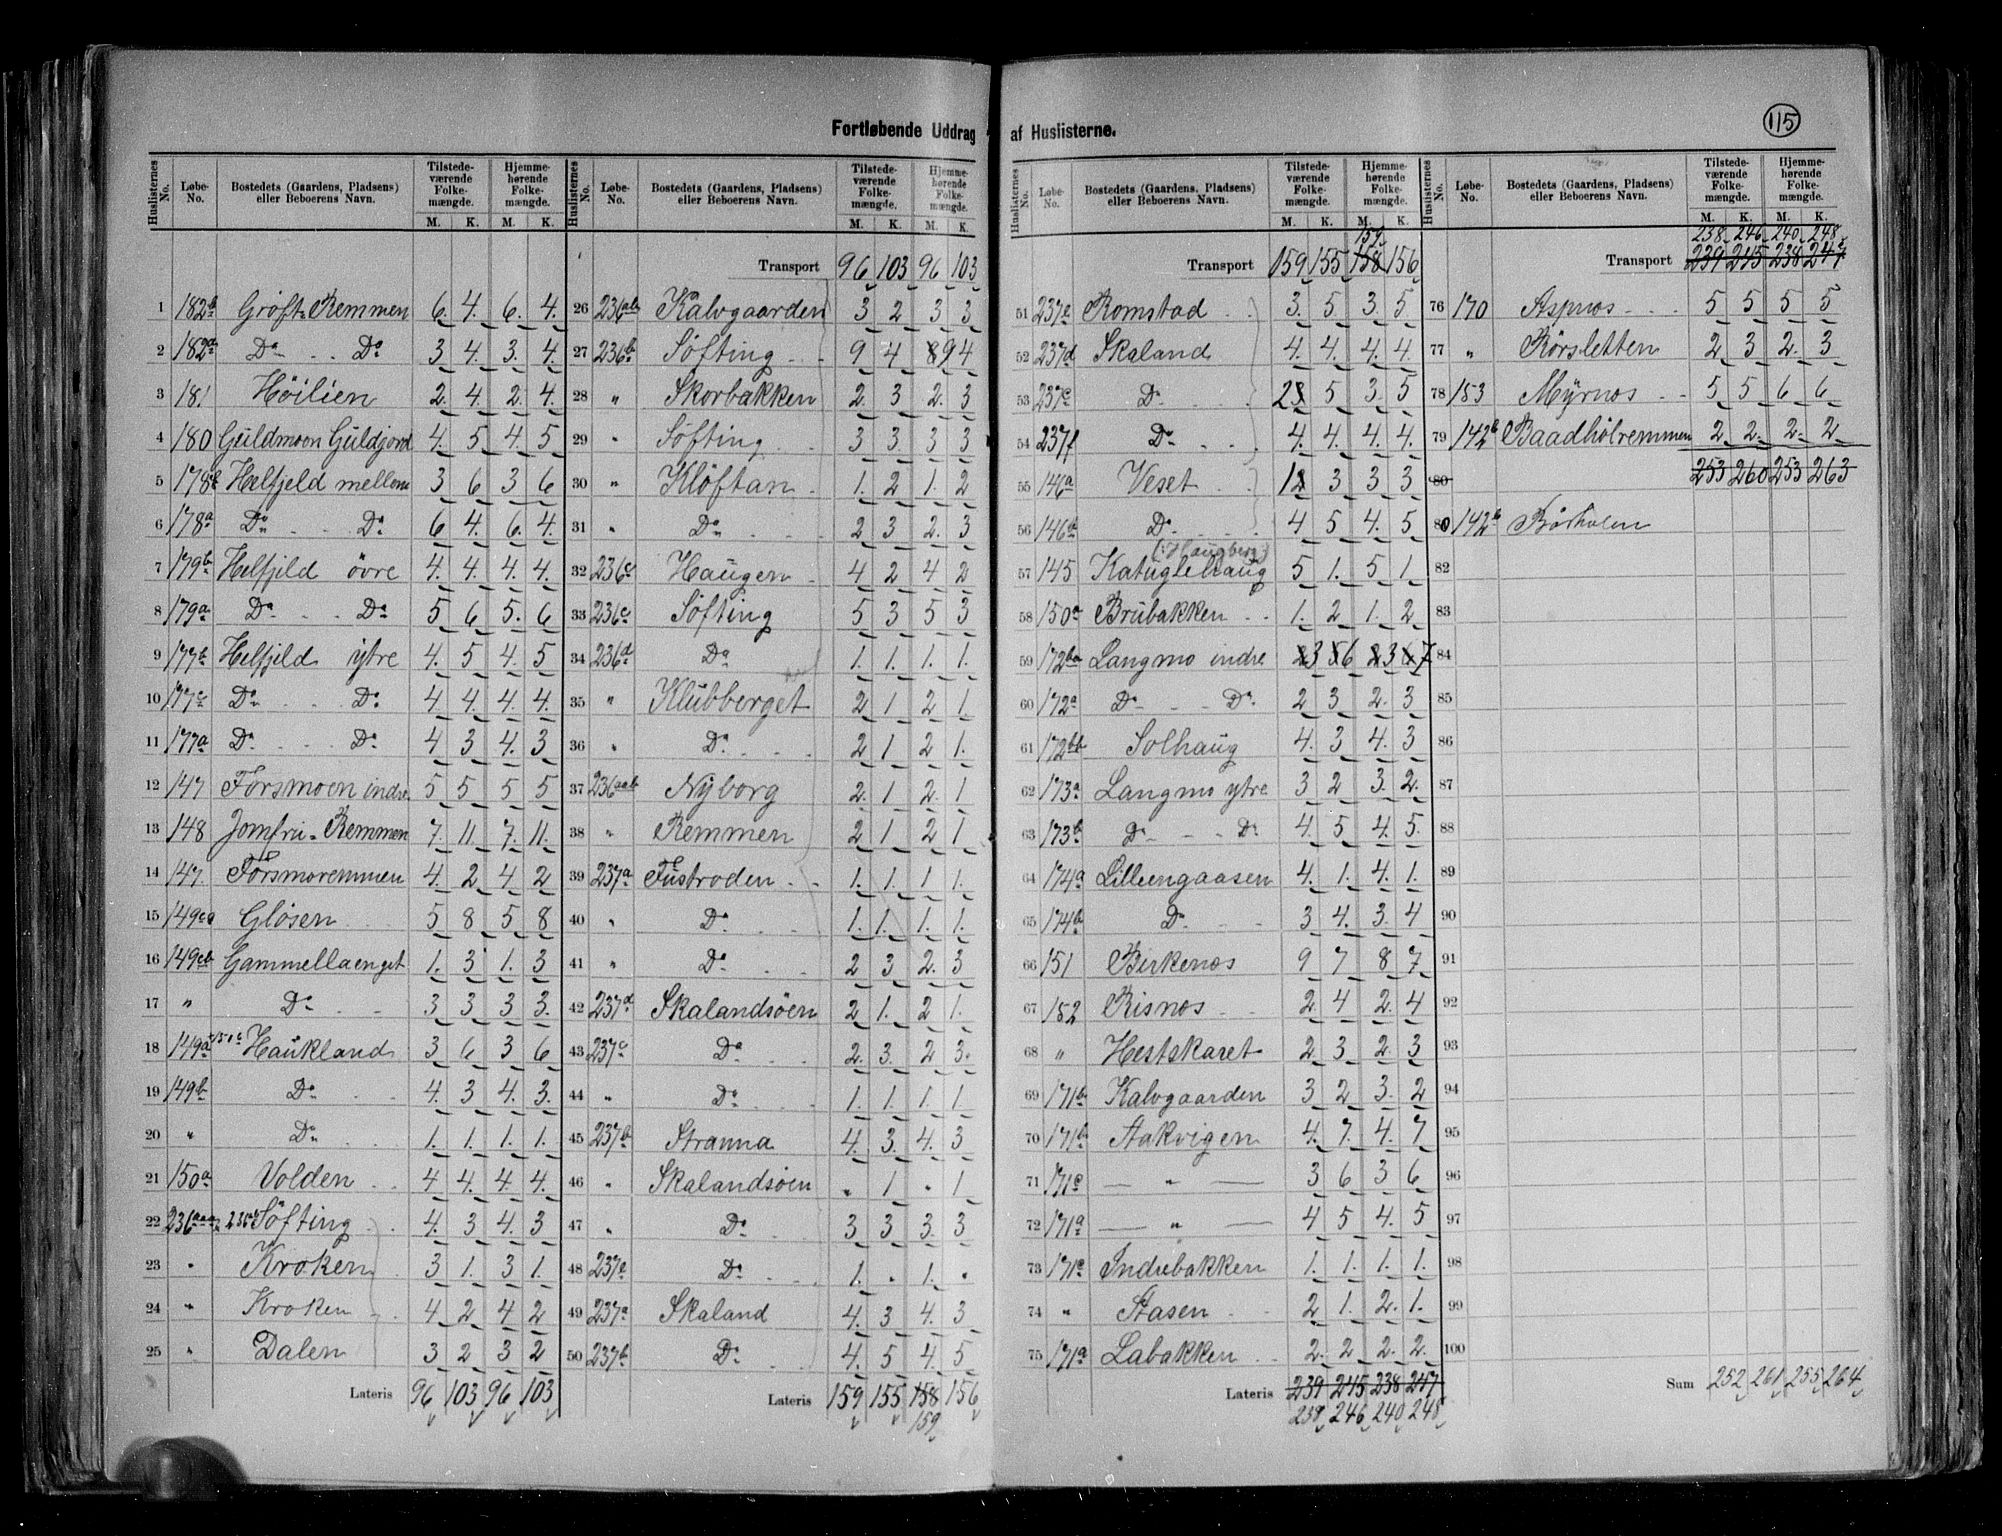 115
Fortløbende Uddrag af Huslisterne.
Huslisternes No. Løbe-No. Bostedets (Gaardens, Pladsens) eller Beboerens Navn. Tilstedeværende Folkemængde. M. K. Hjemmehørende Folkemængde. M. K.
1 182b Grøft=Remmen 6. 4. 6. 4.
2 182a Do - . - Do 3 4. 3. 4.
3 181 Høilien 2. 4. 2. 4.
4 180 Guldmoen Guldjord 4. 5 4. 5
5 178b Helfjeld mellem 3 6 3 6
6 178a Do - . - Do 6 4. 6. 4.
7 179b Helfjeld øvre 4. 4. 4. 4.
8 179a Do - . - Do 5 6 5. 6
9 177b Helfjeld ytre 4. 5 4. 5
10 177c Do - . - Do 4 4. 4. 4.
11 177a Do - . - Do 4 3 4. 3
12 147 Forsmoen indre 5 5 5 5
13 148 Jomfru=Remmen 7. 11. 7. 11.
14 147. Forsmoremmen 4. 2 4. 2
15 149ca Gløsen 5 8 5 8
16 149cb Gammellaenget 1. 3 1. 3
17 " Do 3 3 3 3.
18 149a 150c Haukland 3 6 3 6
19 149b Do 4. 3 4. 3.
20 " Do 1. 1. 1. 1.
21 150a Volden 4 4. 4. 4.
22 236aaa, 236 Søfting 4. 3 4. 3
23 " Kroken 3 1. 3 1.
24 " Kroken 4 2 4 2
25 " Dalen 3 2 3 2
Lateris 96 103 96 103
Huslisternes No. Løbe-No. Bostedets (Gaardens, Pladsens) eller Beboerens Navn. Tilstedeværende Folkemængde. M. K. Hjemmehørende Folkemængde. M. K.
Transport 96 103 96 103
26 236ab Kalvgaarden 3 2 3 3
27 236b Søfting 9 4 89 4
28 " Skorbakken 2 3 2. 3
29 " Søfting 3 3 3 3
30 " Kløftan 1. 2 1. 2
31 " Do 2 3 2. 3
32 236c Haugen 4 2 4 2
33 236c Søfting 5 3 5 3
34 236d Do 1. 1. 1. 1.
35 " Klubberget 2 1 2 1.
36 " Do 2 1 2 1.
37 236aab Nyborg 2. 1 2. 1
38 " Remmen 2 1 2 1
39 237a Fustroden 1. 1. 1 1.
40 " Do 1. 1. 1. 1.
41 " Do 2 3 2. 3
42 237d Skalandsøen 2 1. 2 1.
43 237c Do 2. 3. 2 3.
44 " Do 1. 1. 1. 1
45 237b Stranna 4. 3 4. 3
46 " Skalandsøen " 1 " 1
47 " Do 3 3 3 3
48 237a Do 1. " 1. "
49 237a Skaland 4. 3 4. 3
50 237b Do 4. 5 4. 5
Lateris 159 155 158 156
159
Huslisternes No. Løbe-No. Bostedets (Gaardens, Pladsens) eller Beboerens Navn. Tilstedeværende Folkemængde. M. K. Hjemmehørende Folkemængde. M. K.
159
Transport 159 155 158 156
51 237e Romstad 3. 5 3. 5
52 237d Skaland 4. 4. 4. 4
53 237c Do 23 5 3. 5
54 237f Do 4. 4. 4. 4.
55 146a Veset 12 3 3 3
56 146b Do 4 5 4. 5
(: Haugberg)
57 145 Katuglehaug 5 1. 5 1.
58 150a Brubakken 1. 2 1. 2
59 172ba Langmo indre 23 56 23 67
60 172a Do - - Do 2 3 2. 3
61 172bb Solhaug 4. 3 4. 3
62 173a Langmo ytre 3 2 3. 2.
63 173b Do - - Do 4. 5 4. 5.
64 174a Lilleengaasen 4. 1. 4. 1.
65 174b Do 3 4. 3. 4
66 151 Birkenos 9 7 8 7
67 152 Risnos 2 4 2. 4
68 " Hestskaret 2 3 2. 3
69 171b Kalvgaarden 3 2 3. 2
70 171b Stakvigen 4. 7. 4. 7
71 171c — " — 3 6 3 6
72 171a — " — 4 5 4. 5
73 171c Indrebakken 1. 1. 1. 1.
74 " Stasen 2 1. 2. 1.
75 171a Labakken 2. 2 2. 2.
Lateris 239 245 238 247
238 246 240 248
Huslisternes No. Løbe-No. Bostedets (Gaardens, Pladsens) eller Beboerens Navn. Tilstedeværende Folkemængde. M. K. Hjemmehørende Folkemængde. M. K.
238 246 240 248
Transport 239 245 238 247
76 170 Aspnos 5 5 5 5
77 " Rørsletten 2 3 2. 3
78 153 Myrnos 5 5 6 6
79 142b Baadhølremmen 2. 2. 2. 2
80 253 260 253 263
80 142b Børholen
82
83
84
85
86
87
88
89
90
91
92
93
94
95
96
97
98
99
100
Sum 252 261 255 264